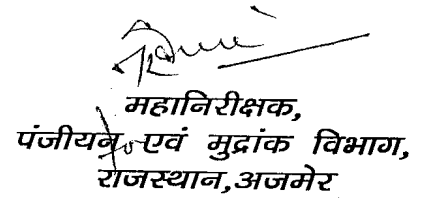 महानिरीक्षक,
पंजीयन एवं मुद्रांक विभाग,
राजस्थान,अजमेर